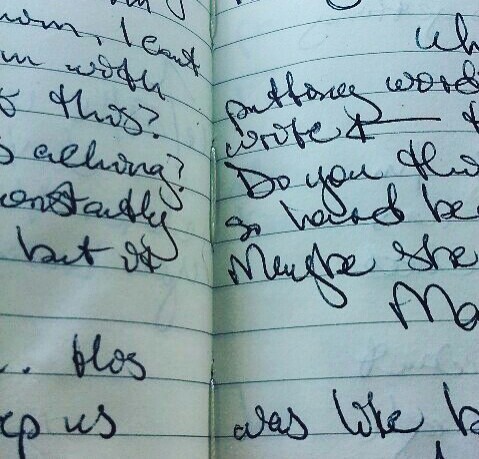 I can't
with
this?
aching?
onstantly
but it
... blos
ep us
Wh
putting word
wrote it —
Do you thi
so hard be
Maybe she
Ma
was like b